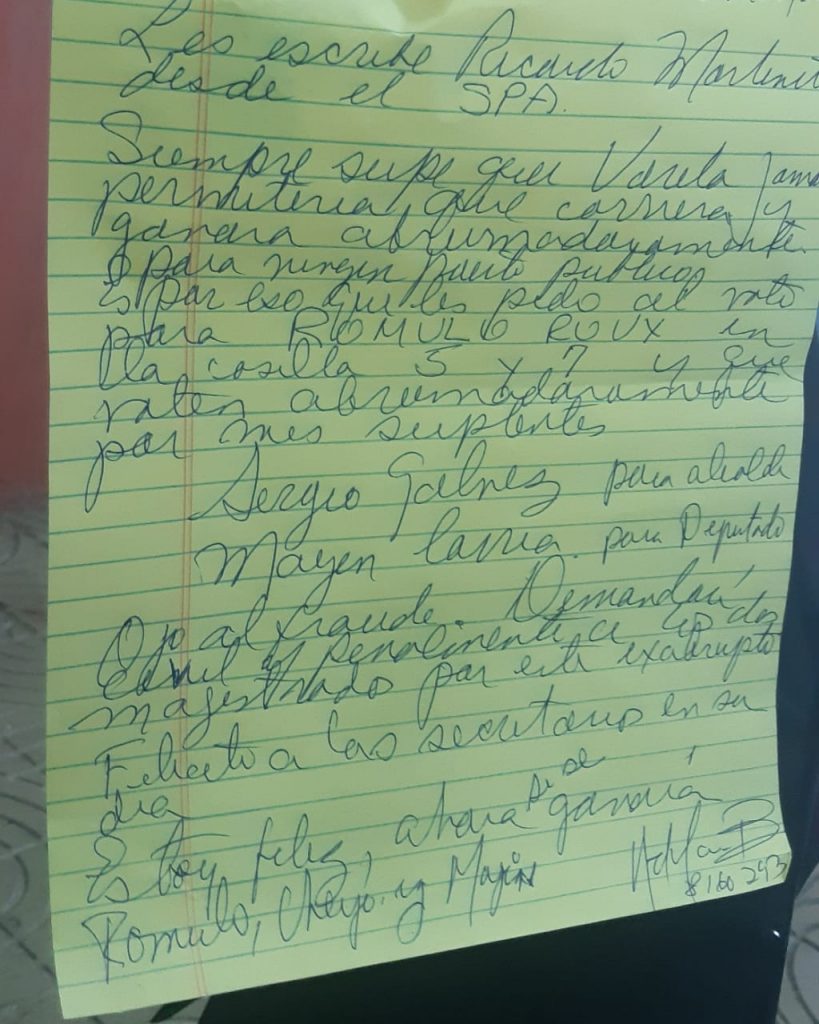 Les escribe Ricardo Martine
desde el SPA.
Siempre supe que Varela jama
permitiria, que corriera y
ganara abrumadoramente.
para ningun puesto publico
Es por eso que les pido el voto
para ROMULO ROUX en
la casilla 5 y 7 y que
voten abrumadoramente
por mis suplentes
Sergio Galvez para alcalde
Mayin Correa. para Deputado
Ojo al fraude. Demandaré
Civil y penalmente a los dos
magistrado por este exabrupto
Felicito a las secretarias en su
dia
Estoy feliz, ahora si se ganará
Romulo, Cheyo. y Mayin
8160293